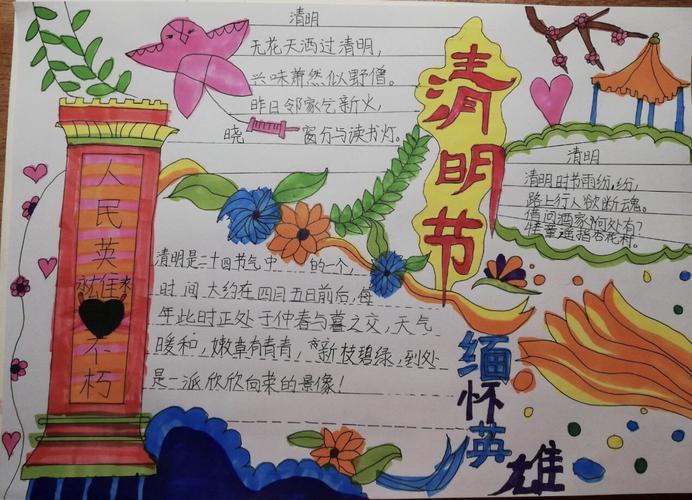 清明
无花天洒过清明,
兴味萧然似野僧。
昨日邻家乞新火,
晓 窗分与读书灯。
清明节
清明
清明时节雨纷,纷,
路上行人欲断魂。
借问酒家何处有?
童遥指杏花村。
人民英
不朽
清明是二十四节气中 的一个,
时间大约在四月五日前后,每
年此时正处于仲春与暮之交,天气
暖和,嫩草有青青,新枝碧绿,到处
是一派欣欣向荣的景像!
缅怀英雄